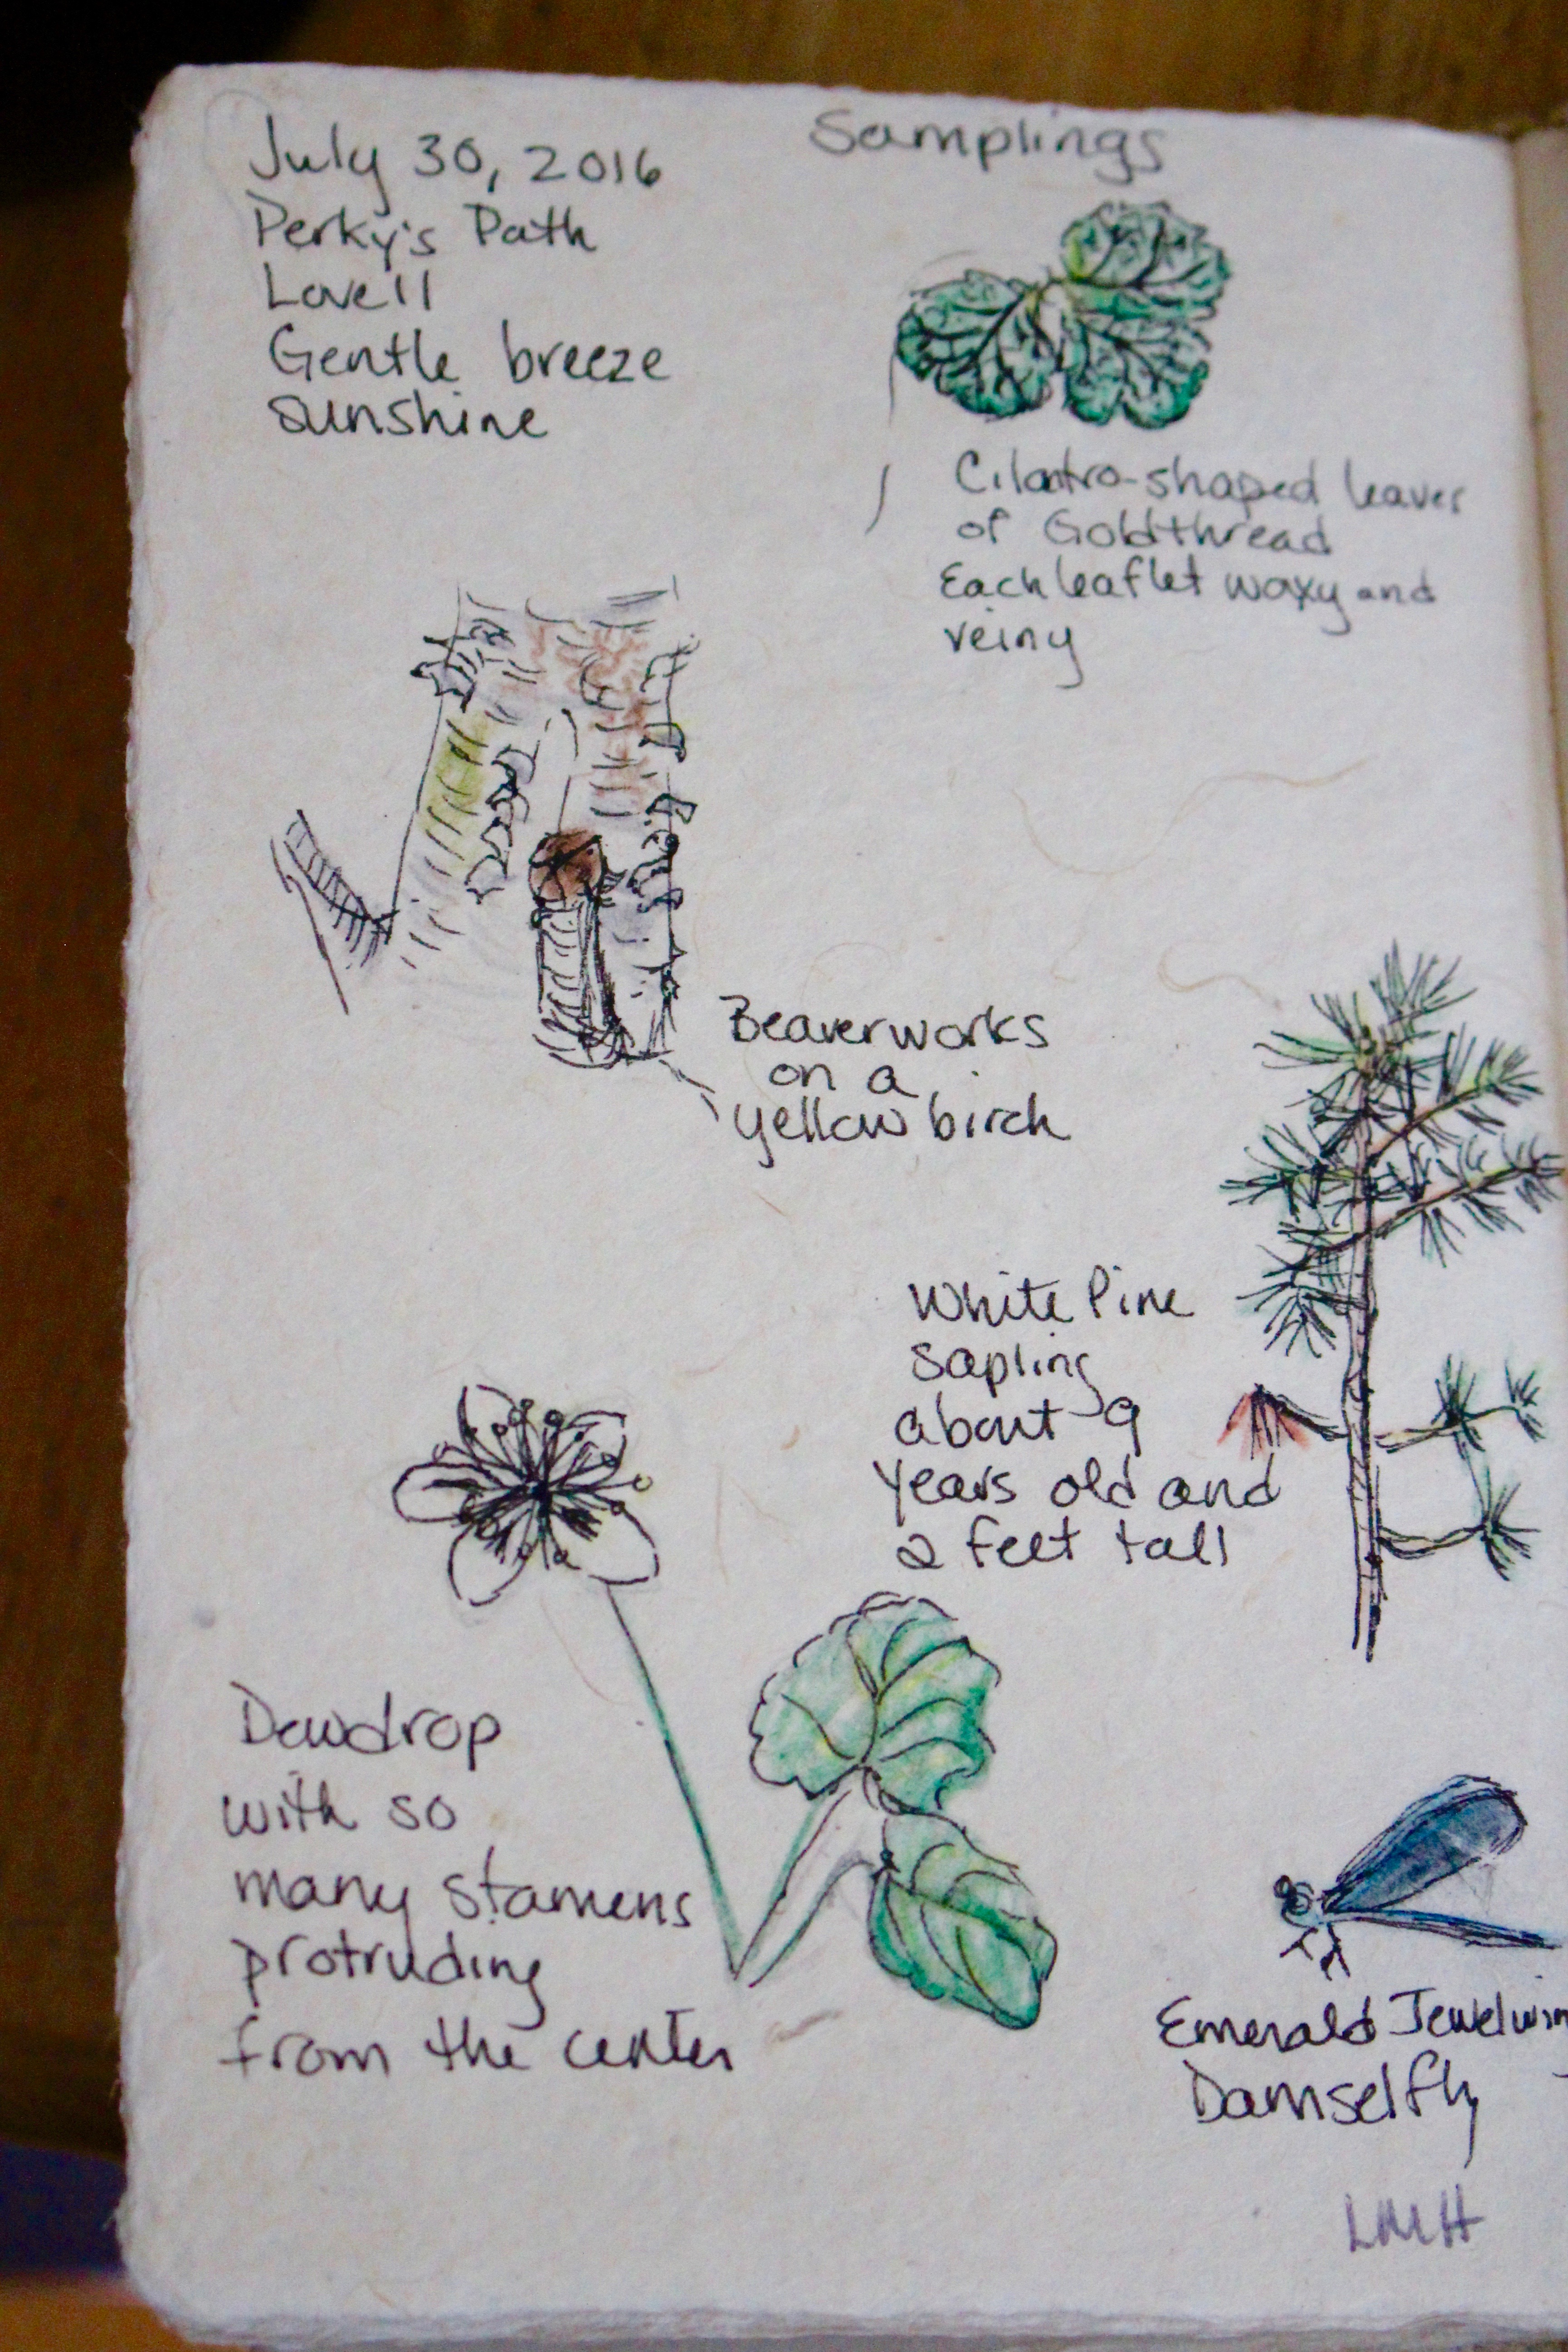 July 30, 2016
Perky's Path
Lovell
Gentle breeze
sunshine
Samplings
Cilantro-shaped leaves
of Goldthread
Each leaflet waxy and
veiny
Beaverworks
on a
yellow birch
White Pine
sapling
about 9
years old and
2 feet tall
Dewdrop
with so
many stamens
protruding
from the center
Emerald Jewelwin
Damselfly
LMH